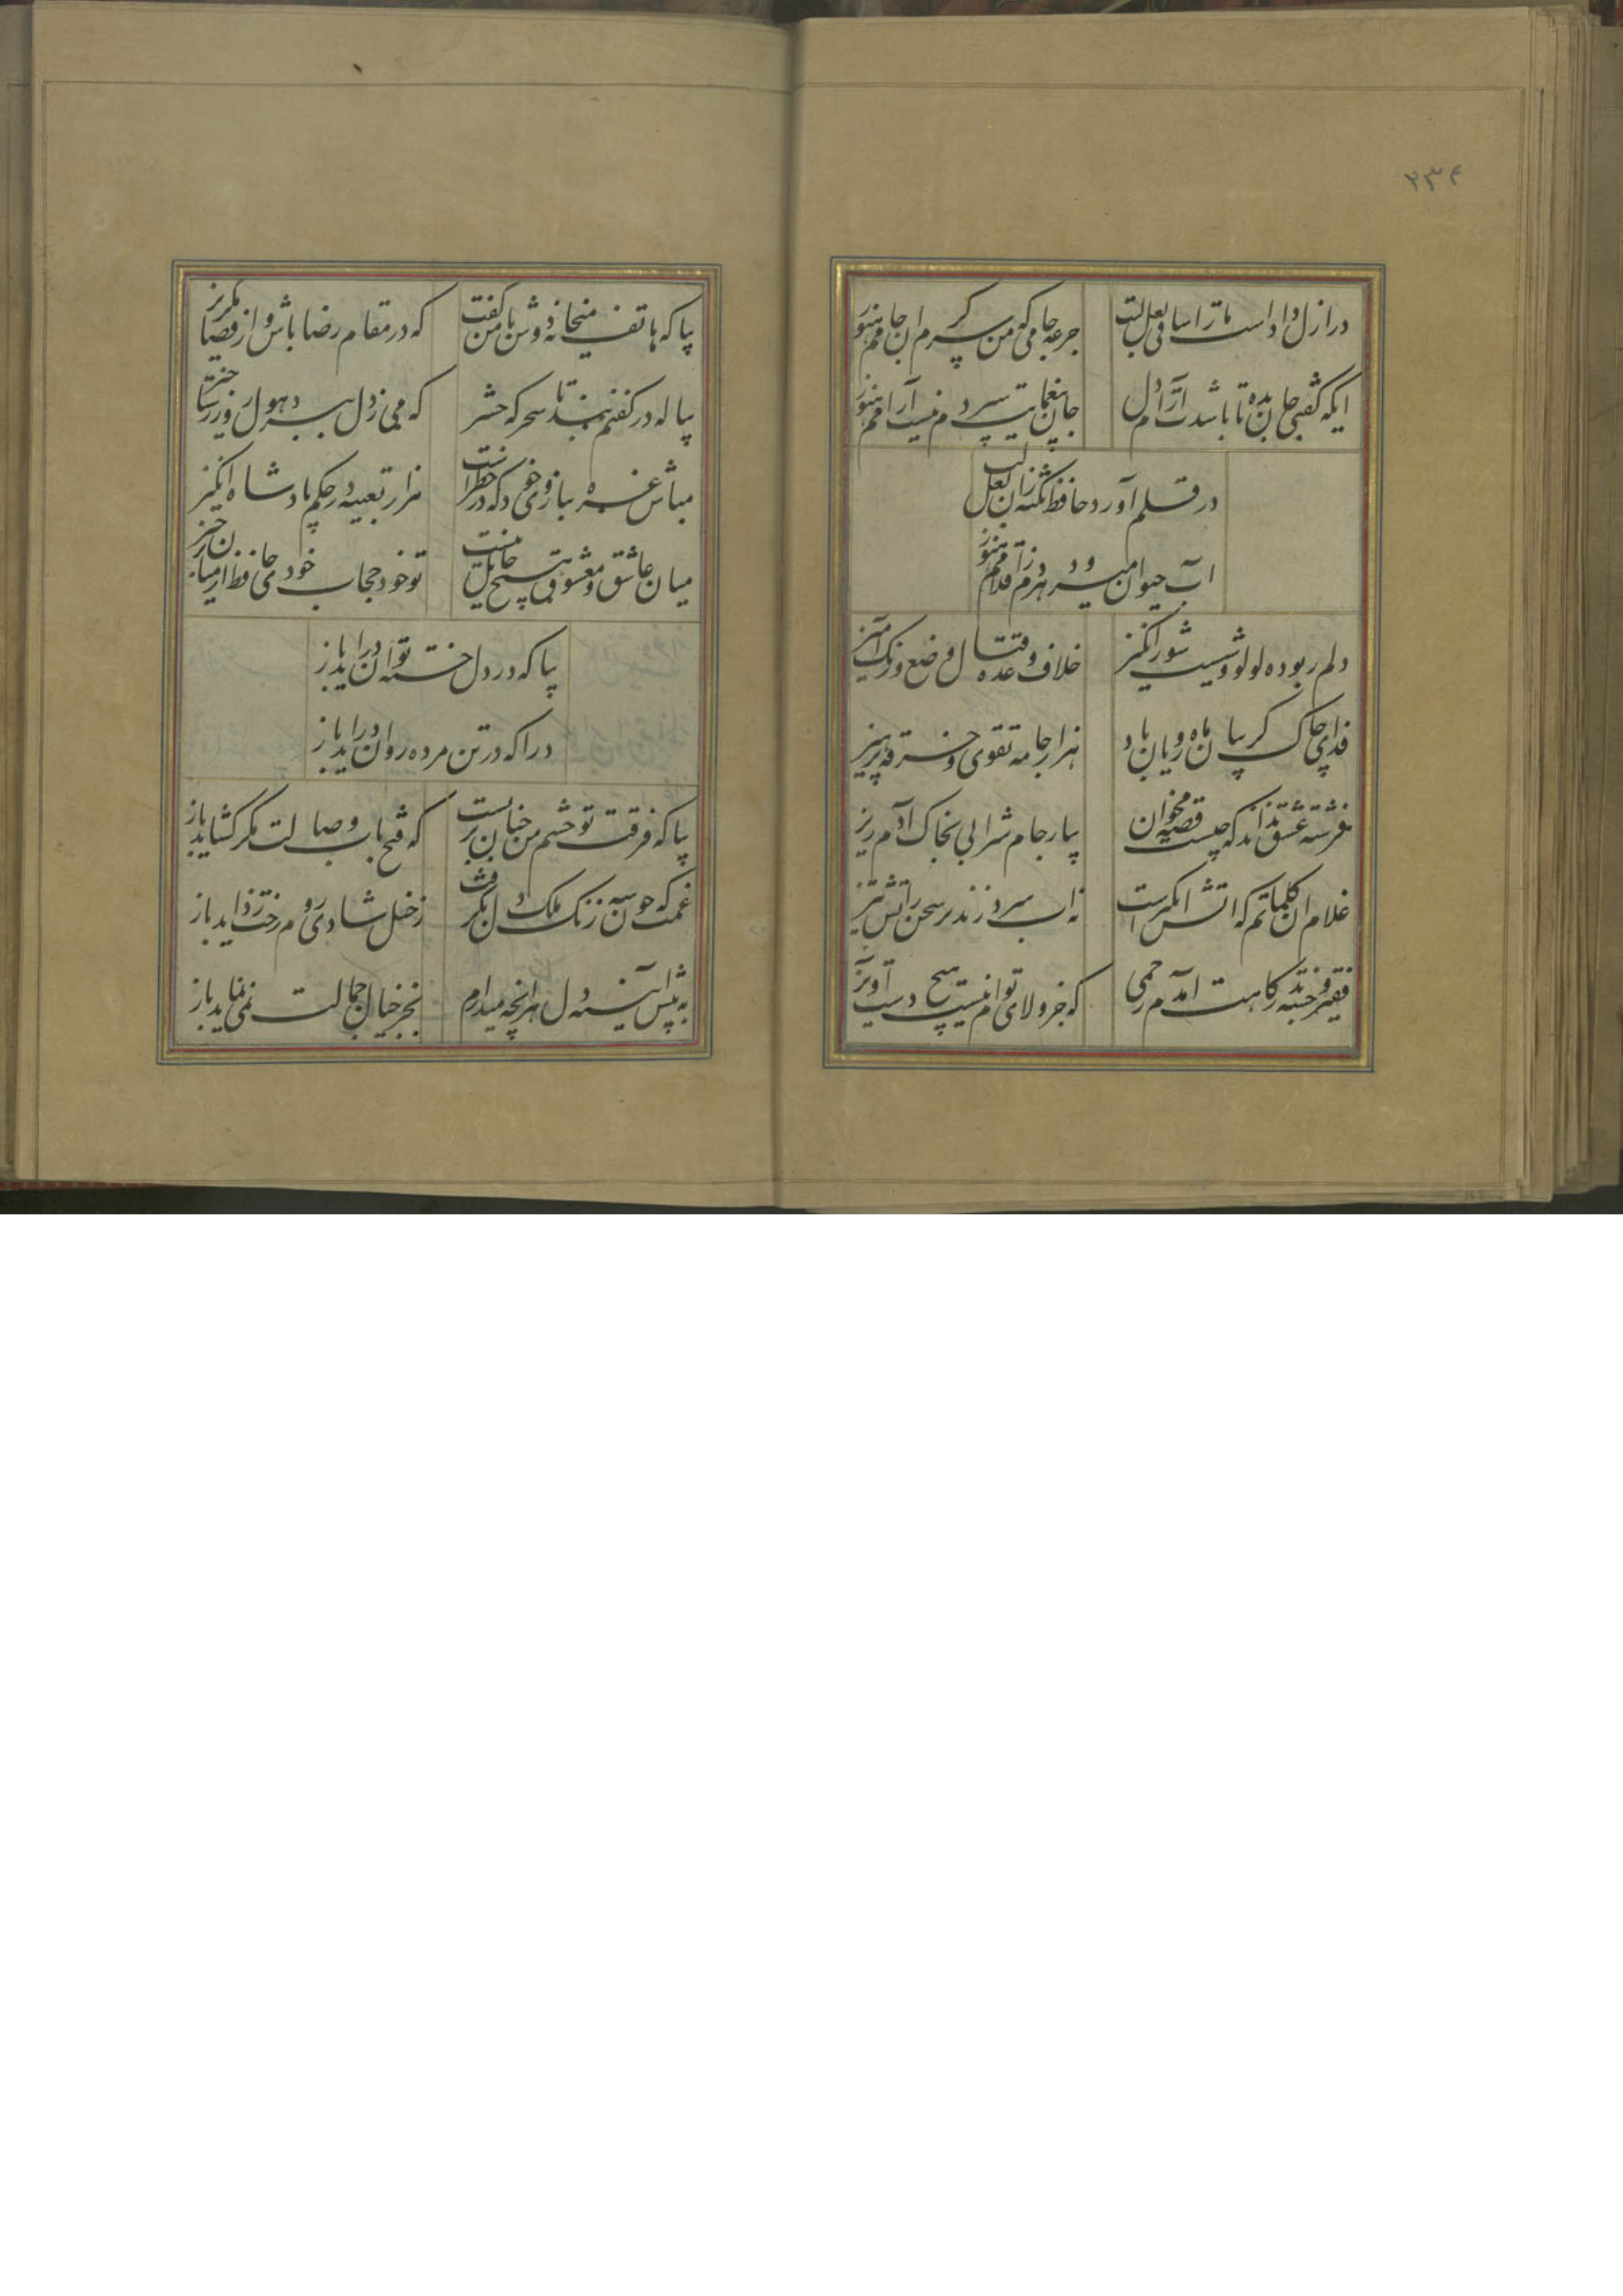 ۲۳۴
در ازل دادست ما را ساقی لعل لبت
جرعه جامی که من سرگرم ان جامم هنوز
ایکه گفتی جان بده تا باشدت آرام دل
جان بغمهایت سپردم نیست آرامم هنوز
در قلم آورد حافظ نکته زان لعل لب
اب حیوان میرود هردم ز اقلامم هنوز
دلم ربوده لولو وشیست شورانگیز
خلاف وعده و قتال وضع و رنگ آمیز
فدای چاک گریبان ماه رویان باد
هزار جامه تقوی و خرقه پرهیز
فرشته عشق نداند که چیست قصه مخوان
بیار جام شرابی بخاک آدم ریز
غلام ان کلماتم که اتش انگیزست
نه اب سرد زند در سخن بر اتش تیز
فقیر و خسته بدرگاهت آمدم رحمی
که جز ولای توام نیست هیچ دست آویز
بیا که هاتف میخانه دوش با من گفت
که در مقام رضا باش و از قضا مگریز
پیاله در کفنم بند تا سحرگه حشر
که می ز دل ببرد هول روز رستاخیز
مباش غره ببازوی خود که در خطرست
هزار تعبیه در حکم پادشاه انگیز
میان عاشق و معشوق هیچ حایل نیست
تو خود حجاب خودی حافظ از میان برخیز
بیا که در دل خسته توان دراید باز
درا که در تن مرده روان دراید باز
بیا که فرقت تو چشم من چنان بربست
که فتح باب وصالت مگر گشاید باز
غمت که چون سپه زنگ ملک دل بگرفت
ز خیل شادی روم رخت زداید باز
به پیش آینه دل هرانچه میدارم
بجز خیال جمالت نمی نماید باز